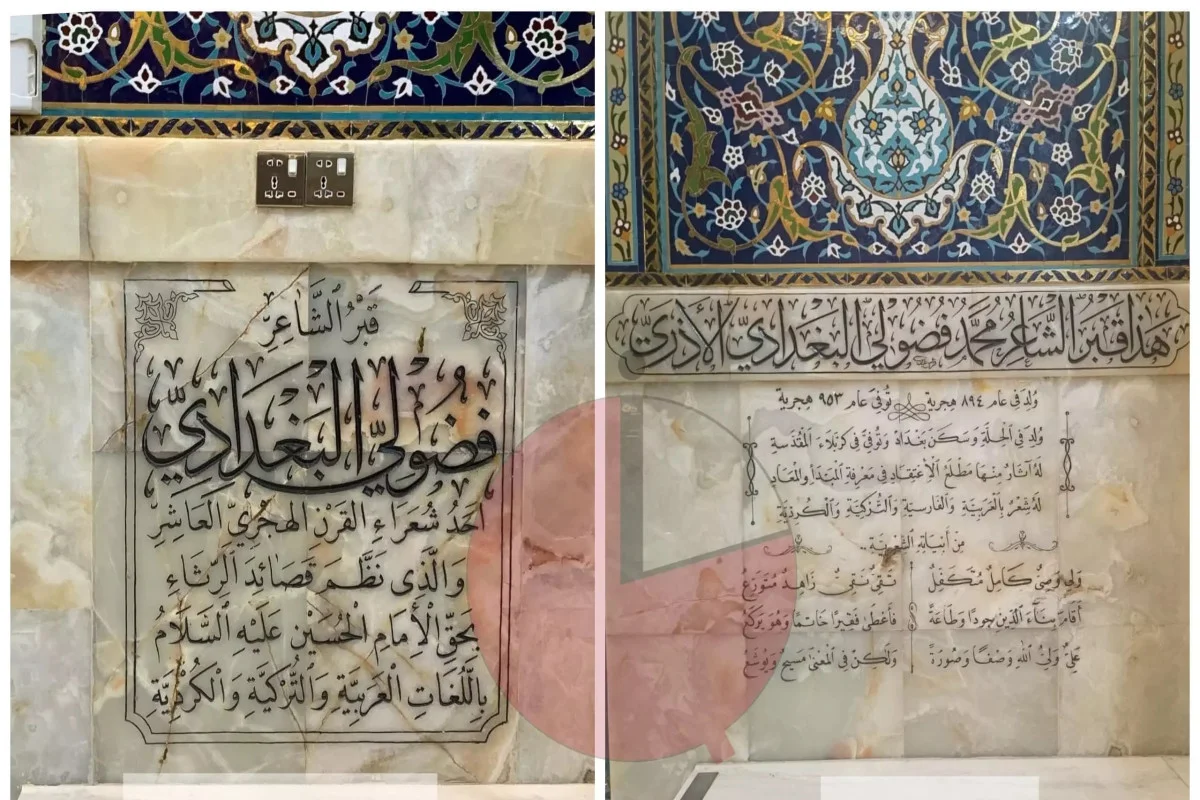 قَبْرُ الشَّاعِرِ
فُضُولِيّ البَغْدَادِيّ
أَحَدُ شُعَرَاءِ القَرْنِ الهِجْرِيّ العَاشِرِ
وَالَّذِي نَظَّمَ قَصَائِدَ الرِّثَاءِ
بِحَقِّ الْأِمَامِ الْحُسَيْنِ عَلَيْهِ السَّلَامُ
بِاللُّغَاتِ الْعَرَبِيَّةِ وَالتُّرْكِيَّةِ وَالْكُرْدِيَّةِ
هَذَا قَبْرُ الشَّاعِرُ مُحَمَّد فُضُولِيّ البَغْدَادِيّ الأَذَرِيّ
وُلِدَ فِي عَام ٨٩٤ هِجرِية تُوُفِّيَ عَام ٩٥٣ هِجرِية
وُلِدَ فِي الْحِلَّةِ وَسَكَنَ بَغْدَادَ وَتُوُفِّيَ فِي كَرْبَلَاءَ الْمُقَدَّسَةِ
لَهُ آثَارٌ مِنْهَا مَطْلَعُ الْأِعْتِقَادِ فِي مَعْرِفَةِ الْمَبْتَدَأِ وَالْمَعَادِ
لَهُ شِعْرٌ بِالْعَرَبِيَّةِ وَالْفَارسِيَّةِ وَالتُّرْكِيَّةِ وَالْكُرْدِيَّةِ
مِنْ ..
وَلِيٌّ وَصِيٌّ كَامِلٌ مُتَكَفِّلٌ تَقِيٌّ نَقِيٌّ زَاهِدٌ مُتَوَرِّعُ
أَقَامَ بِنَاءَ الدِّينِ جُودًا وَطَاعَةً فَأَعْطَى فَقِيرًا خَاتَمًا وَهُوَ يَرْكَعُ
عَلِيٌّ وَلِيُّ اللهِ وَصْفًا وَصُورَةً وَلَكِنْ فِي الْمَعْنَى مَسِيحٌ وَيُوشَعُ